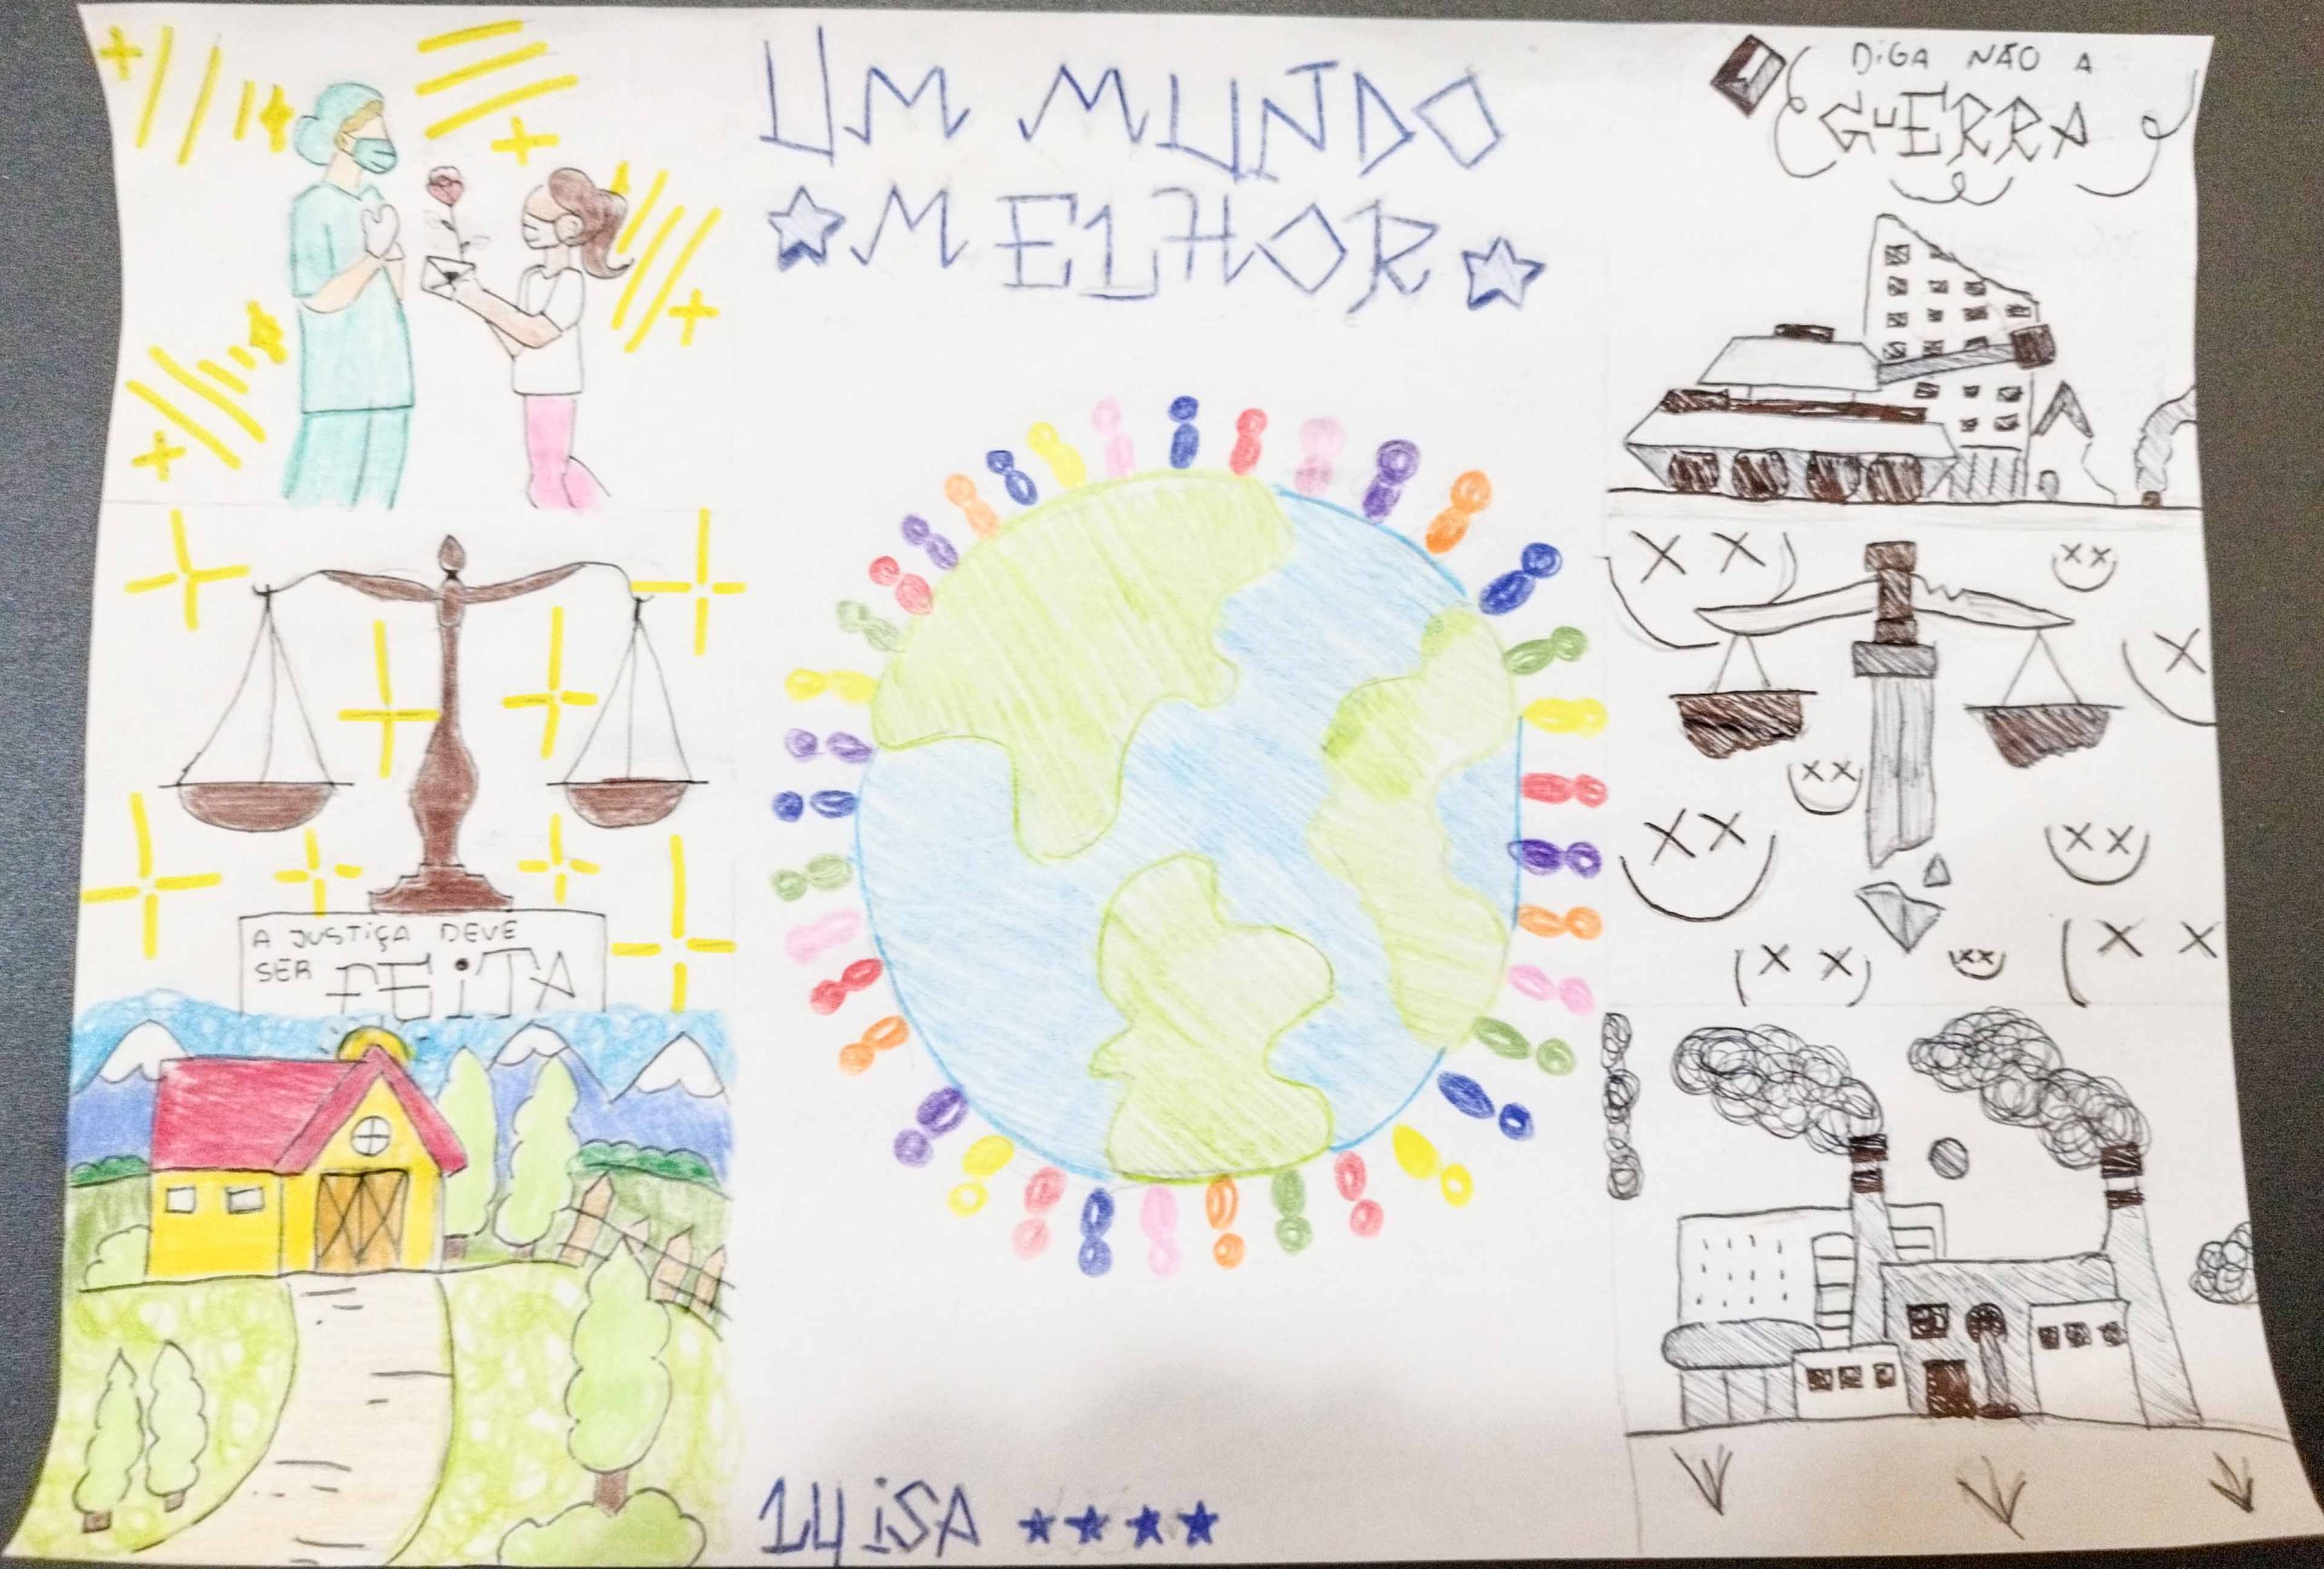 UM MUNDO
MELHOR
DiGA NÃO A
GUERRA
A JUSTiÇA DEVE
SER FEiTA
LUiSA